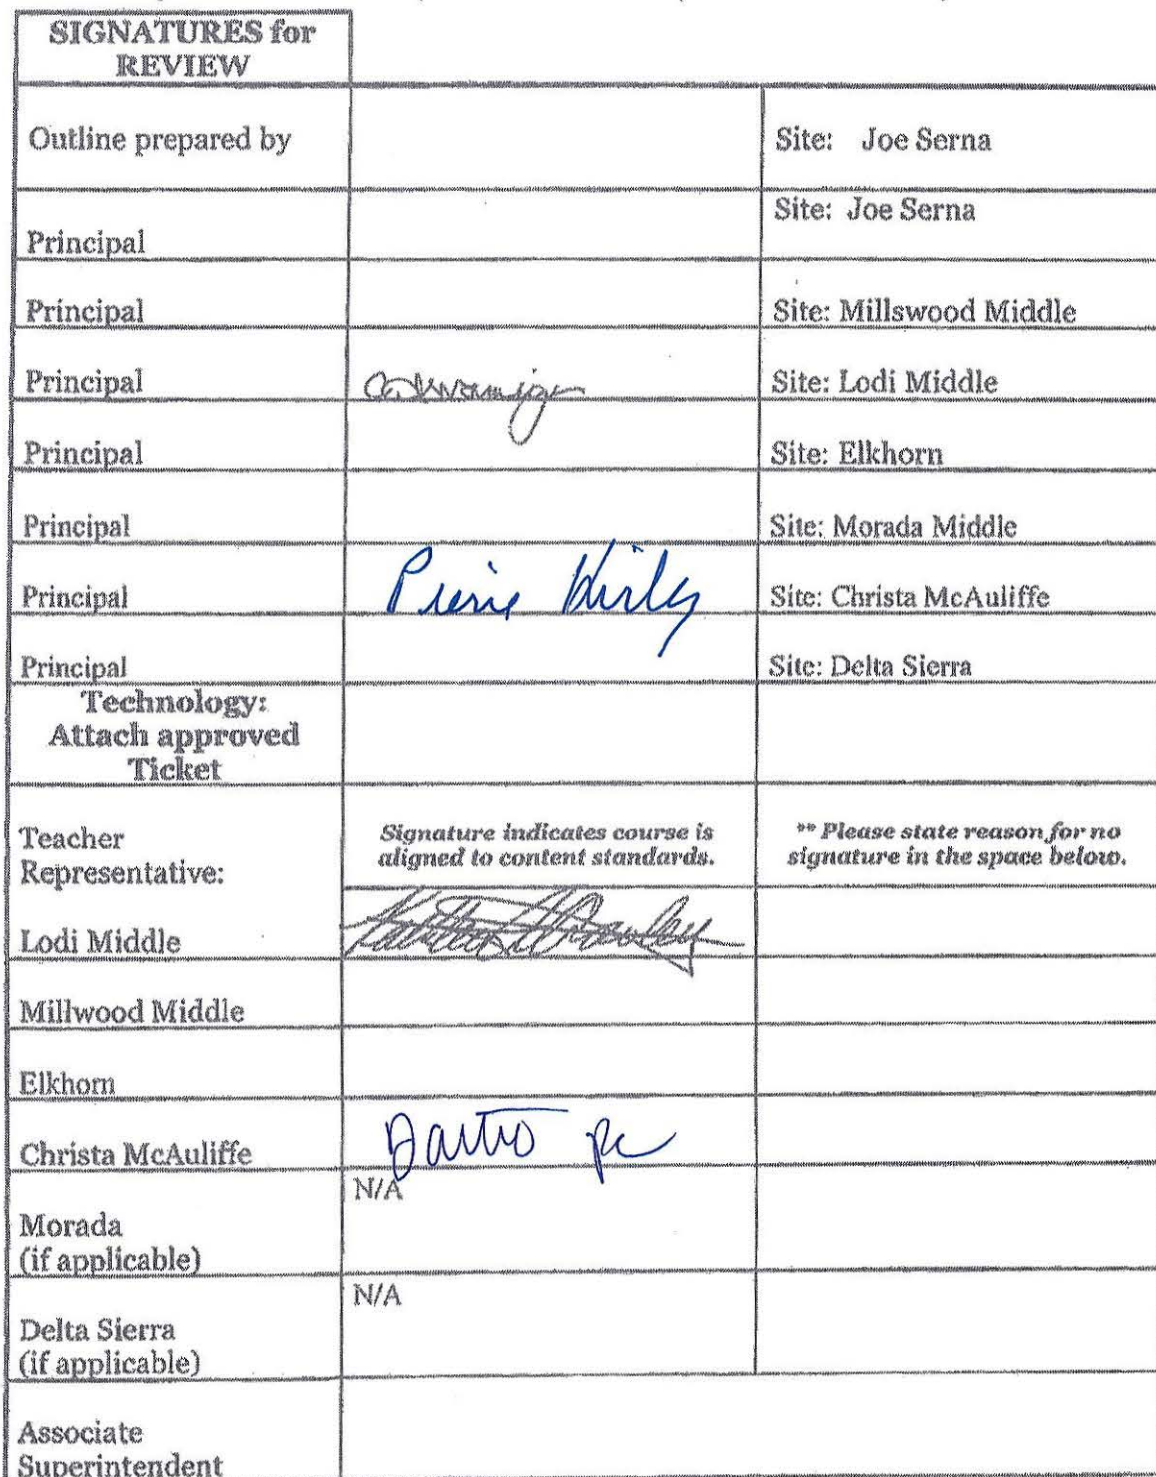 SIGNATURES for
REVIEW
Outline prepared by
Site: Joe Serna
Principal
Site: Joe Serna
Principal
Site: Millswood Middle
Principal
Site: Lodi Middle
Principal
Site: Elkhorn
Principal
Site: Morada Middle
Principal
Site: Christa McAuliffe
Principal
Site: Delta Sierra
Technology:
Attach approved
Ticket
Teacher
Representative:
Signature indicates course is
aligned to content standards.
** Please state reason for no
signature in the space below.
Lodi Middle
Millwood Middle
Elkhorn
Christa McAuliffe
N/A
Morada
(if applicable)
N/A
Delta Sierra
(if applicable)
Associate
Superintendent